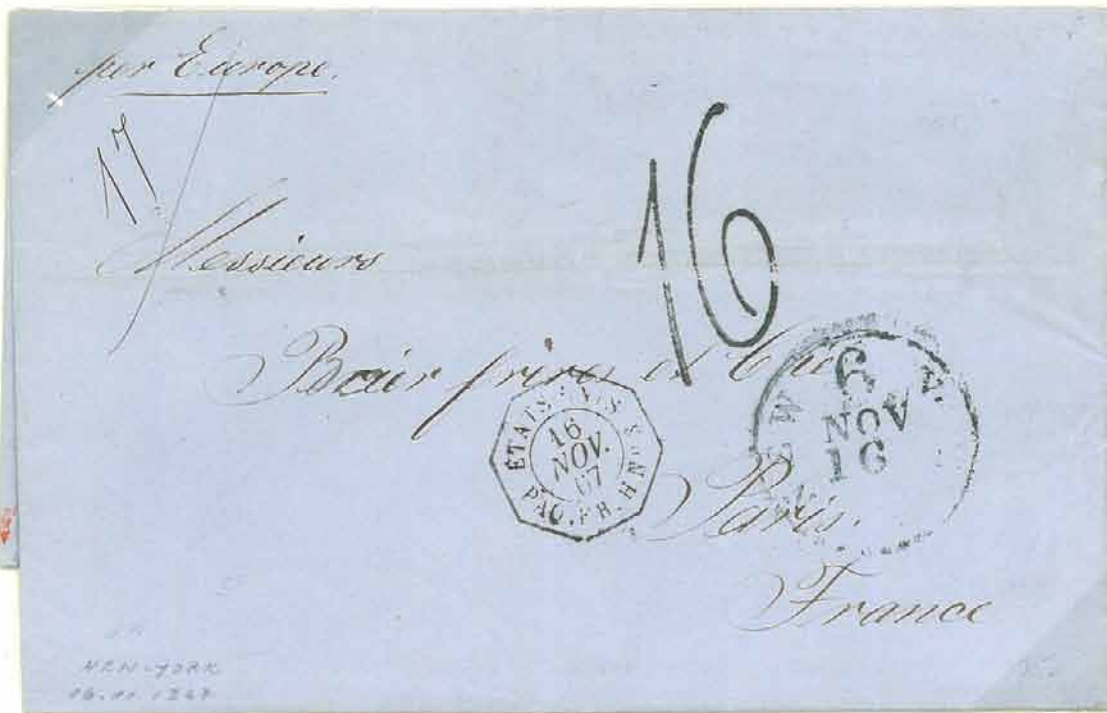 per Europe.
17
16
Messieurs
Bair frères et Cie
6
NOV
16
ÉTATS-UNIS
16
NOV.
67
PAQ. FR. H Nº
Paris.
France
NEW-YORK
16.11.1867